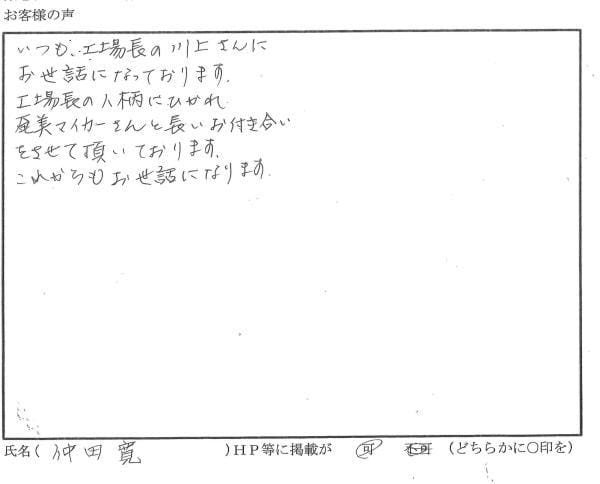 お客様の声
いつも、工場長の川上さんに
お世話になっております。
工場長の人柄にひかれ
奄美マイカーさんと長いお付き合い
をさせて頂いております。
これからもお世話になります。
氏名( 仲田 寛 )HP等に掲載が 可 不可 (どちらかに○印を)